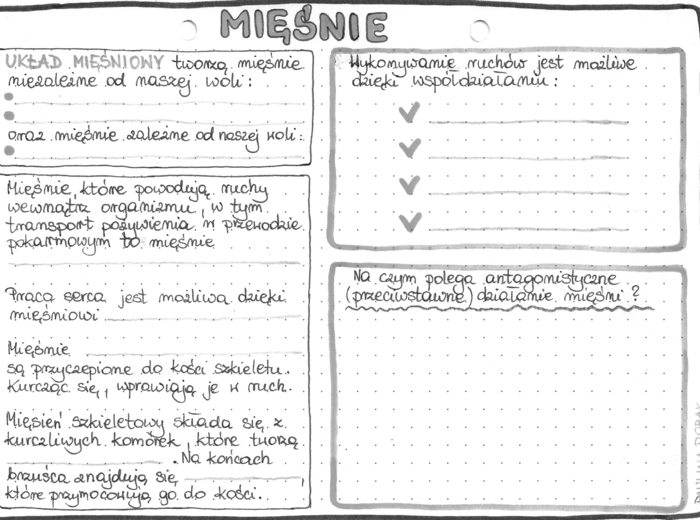 MIĘŚNIE
UKŁAD MIĘŚNIOWY tworzą mięśnie
niezależne od naszej woli:
oraz mięśnie zależne od naszej woli:
Mięśnie, które powodują ruchy
wewnątrz organizmu, w tym
transport pożywienia w przewodzie
pokarmowym to mięśnie
Praca serca jest możliwa dzięki
mięśniowi
Mięśnie
są przyczepione do kości szkieletu.
Kurcząc się, wprawiają je w ruch.
Mięsień szkieletowy składa się z
kurczliwych komórek, które tworzą
. Na końcach
brzuśca znajdują się ,
które przymocowują go do kości.
Wykonywanie ruchów jest możliwe
dzięki współdziałaniu:
Na czym polega antagonistyczne
(przeciwstawne) działanie mięśni?